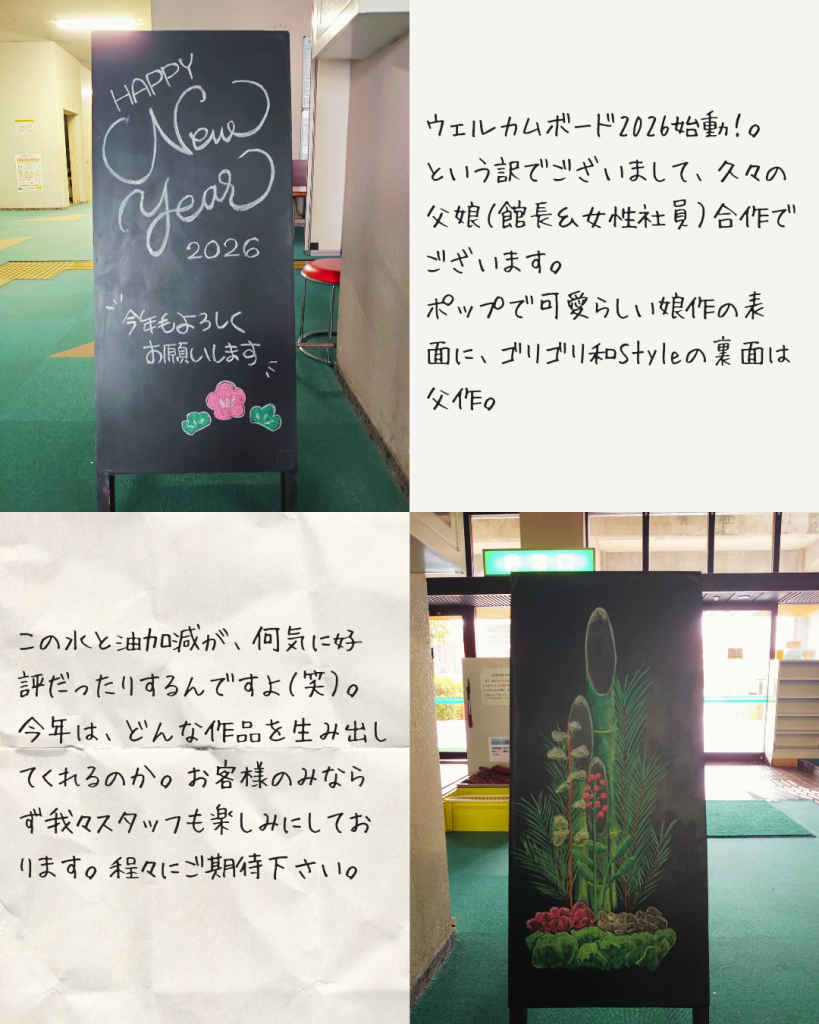 HAPPY
New
Year
2026
今年もよろしく
お願いします
ウェルカムボード2026始動!。
という訳でございまして、久々の
父娘(館長&女性社員)合作で
ございます。
ポップで可愛らしい娘作の表
面に、ゴリゴリ和Styleの裏面は
父作。
この水と油加減が、何気に好
評だったりするんですよ(笑)。
今年は、どんな作品を生み出し
てくれるのか。お客様のみなら
ず我々スタッフも楽しみにしてお
ります。程々にご期待下さい。
非常口